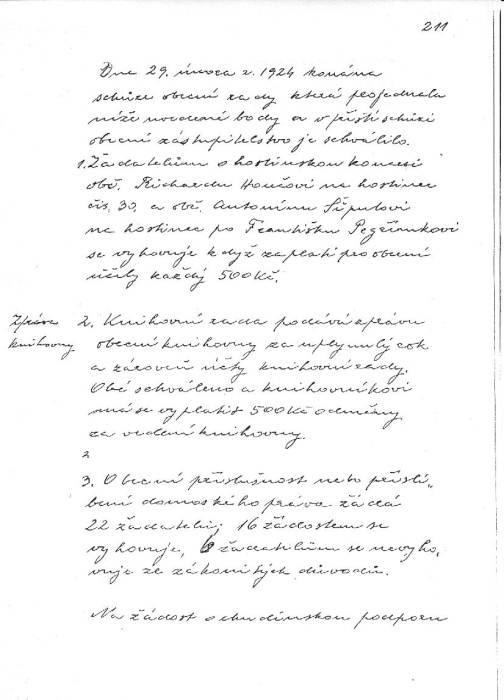 211
Dne 29. února r. 1924 konána
schůze obecní rady která projednala
níže uvedené body a v příští schůzi
obecní zástupitelstvo je schválilo.
1. Žadatelům o hostinskou koncesi
obč. Richardu Houšovi na hostinec
čís. 30. a obč. Antonínu Šípulovi
na hostinec po Františku
se vyhovuje když zaplatí pro obecní
účely každý 500 Kč.
Zpráva
knihovny
2. Knihovní rada podává zprávu
obecní knihovny za uplynulý rok
a zároveň účty knihovní rady.
Obé schváleno a knihovníkovi
má se vyplatit 500 Kč odměny
za vedení knihovny.
2
3. Obecní příslušnost nebo přísli-
bení domovského práva žádá
22 žadatelů; 16 žádostem se
vyhovuje, 6 žadatelům se nevyho-
vuje ze zákonitých důvodů.
Na žádost o chudinskou podporu